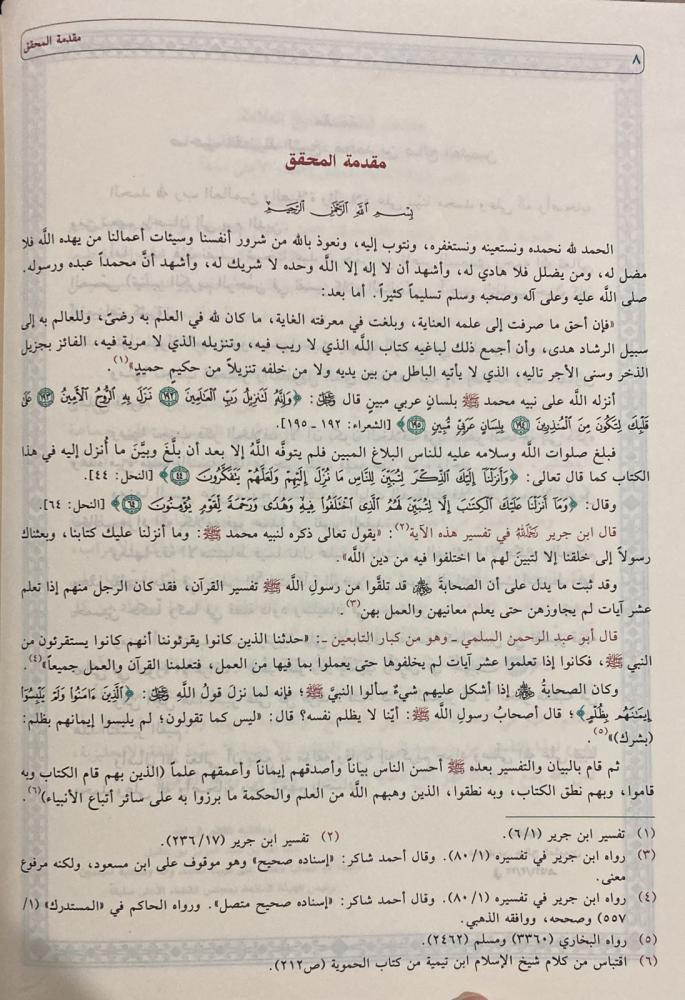 ٨
مقدمة المحقق
مقدمة المحقق
بِسْمِ اللَّهِ الرَّحْمَنِ الرَّحِيمِ
الحمد لله نحمده ونستعينه ونستغفره، ونتوب إليه، ونعوذ بالله من شرور أنفسنا وسيئات أعمالنا من يهده اللَّه فلا
مضل له، ومن يضلل فلا هادي له، وأشهد أن لا إله إلا اللَّه وحده لا شريك له، وأشهد أنَّ محمداً عبده ورسوله.
صلى اللَّه عليه وعلى آله وصحبه وسلم تسليماً كثيراً. أما بعد:
«فإن أحق ما صرفت إلى علمه العناية، وبلغت في معرفته الغاية، ما كان لله في العلم به رضىً، وللعالم به إلى
سبيل الرشاد هدى، وأن أجمع ذلك لباغيه كتاب اللَّه الذي لا ريب فيه، وتنزيله الذي لا مرية فيه، الفائز بجزيل
الذخر وسنى الأجر تاليه، الذي لا يأتيه الباطل من بين يديه ولا من خلفه تنزيلاً من حكيمٍ حميدٍ»(١).
أنزله اللَّه على نبيه محمد ﷺ بلسانٍ عربي مبينٍ قال ﷻ: ﴿وَإِنَّهُ لَتَنزِيلُ رَبِّ ٱلْعَٰلَمِينَ ١٩٢ نَزَلَ بِهِ ٱلرُّوحُ ٱلْأَمِينُ ١٩٣ عَلَىٰ
قَلْبِكَ لِتَكُونَ مِنَ ٱلْمُنذِرِينَ ١٩٤ بِلِسَانٍ عَرَبِيٍّ مُّبِينٍ ١٩٥﴾ [الشعراء: ١٩٢ - ١٩٥].
فبلغ صلوات اللَّه وسلامه عليه للناس البلاغ المبين فلم يتوفَّه اللَّهُ إلا بعد أن بلَّغَ وبيَّنَ ما أُنزل إليه في هذا
الكتاب كما قال تعالى: ﴿وَأَنزَلْنَآ إِلَيْكَ ٱلذِّكْرَ لِتُبَيِّنَ لِلنَّاسِ مَا نُزِّلَ إِلَيْهِمْ وَلَعَلَّهُمْ يَتَفَكَّرُونَ ٤٤﴾ [النحل: ٤٤].
وقال: ﴿وَمَآ أَنزَلْنَا عَلَيْكَ ٱلْكِتَٰبَ إِلَّا لِتُبَيِّنَ لَهُمُ ٱلَّذِى ٱخْتَلَفُوا۟ فِيهِ وَهُدًى وَرَحْمَةً لِّقَوْمٍ يُؤْمِنُونَ ٦٤﴾ [النحل: ٦٤].
قال ابن جرير رَحِمَهُ اللَّهُ في تفسير هذه الآية(٢): «يقول تعالى ذكره لنبيه محمد ﷺ: وما أنزلنا عليك كتابنا، وبعثناك
رسولاً إلى خلقنا إلا لتبينَ لهم ما اختلفوا فيه من دين اللَّه».
وقد ثبت ما يدل على أن الصحابةَ رضي الله عنهم قد تلقَّوا من رسولِ اللَّه ﷺ تفسير القرآن، فقد كان الرجل منهم إذا تعلم
عشر آيات لم يجاوزهن حتى يعلم معانيهن والعمل بهن(٣).
قال أبو عبد الرحمن السلمي ـ وهو من كبار التابعين ـ: «حدثنا الذين كانوا يقرئوننا أنهم كانوا يستقرئون من
النبي ﷺ، فكانوا إذا تعلموا عشر آيات لم يخلفوها حتى يعملوا بما فيها من العمل، فتعلمنا القرآن والعمل جميعاً»(٤).
وكان الصحابةُ رضي الله عنهم إذا أشكل عليهم شيءٌ سألوا النبيَّ ﷺ؛ فإنه لما نزلَ قولُ اللَّهِ ﷻ: ﴿ٱلَّذِينَ ءَامَنُوا۟ وَلَمْ يَلْبِسُوٓا۟
إِيمَٰنَهُم بِظُلْمٍ﴾؛ قال أصحابُ رسولِ اللَّه ﷺ: أيّنا لا يظلم نفسه؟ قال: «ليس كما تقولون؛ لم يلبسوا إيمانهم بظلم:
(بشرك)»(٥).
ثم قام بالبيان والتفسير بعده ﷺ أحسن الناس بياناً وأصدقهم إيماناً وأعمقهم علماً (الذين بهم قام الكتاب وبه
قاموا، وبهم نطق الكتاب، وبه نطقوا، الذين وهبهم اللَّه من العلم والحكمة ما برزوا به على سائر أتباع الأنبياء)(٦).
(١) تفسير ابن جرير (٦/١).
(٢) تفسير ابن جرير (٢٣٦/١٧).
(٣) رواه ابن جرير في تفسيره (٨٠/١). وقال أحمد شاكر: «إسناده صحيح» وهو موقوف على ابن مسعود، ولكنه مرفوع
معنى.
(٤) رواه ابن جرير في تفسيره (٨٠/١). وقال أحمد شاكر: «إسناده صحيح متصل». ورواه الحاكم في «المستدرك» (١/
٥٥٧) وصححه، ووافقه الذهبي.
(٥) رواه البخاري (٣٣٦٠) ومسلم (٢٤٦٢).
(٦) اقتباس من كلام شيخ الإسلام ابن تيمية من كتاب الحموية (ص٢١٢).